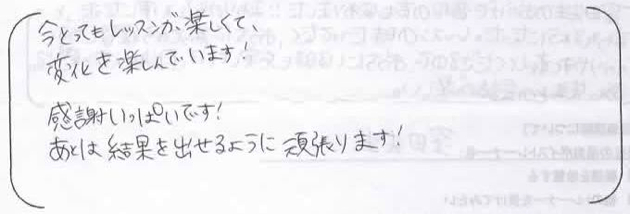 今とってもレッスンが楽しくて、
変化を楽しんでいます!
感謝いっぱいです!
あとは結果を出せるように頑張ります!